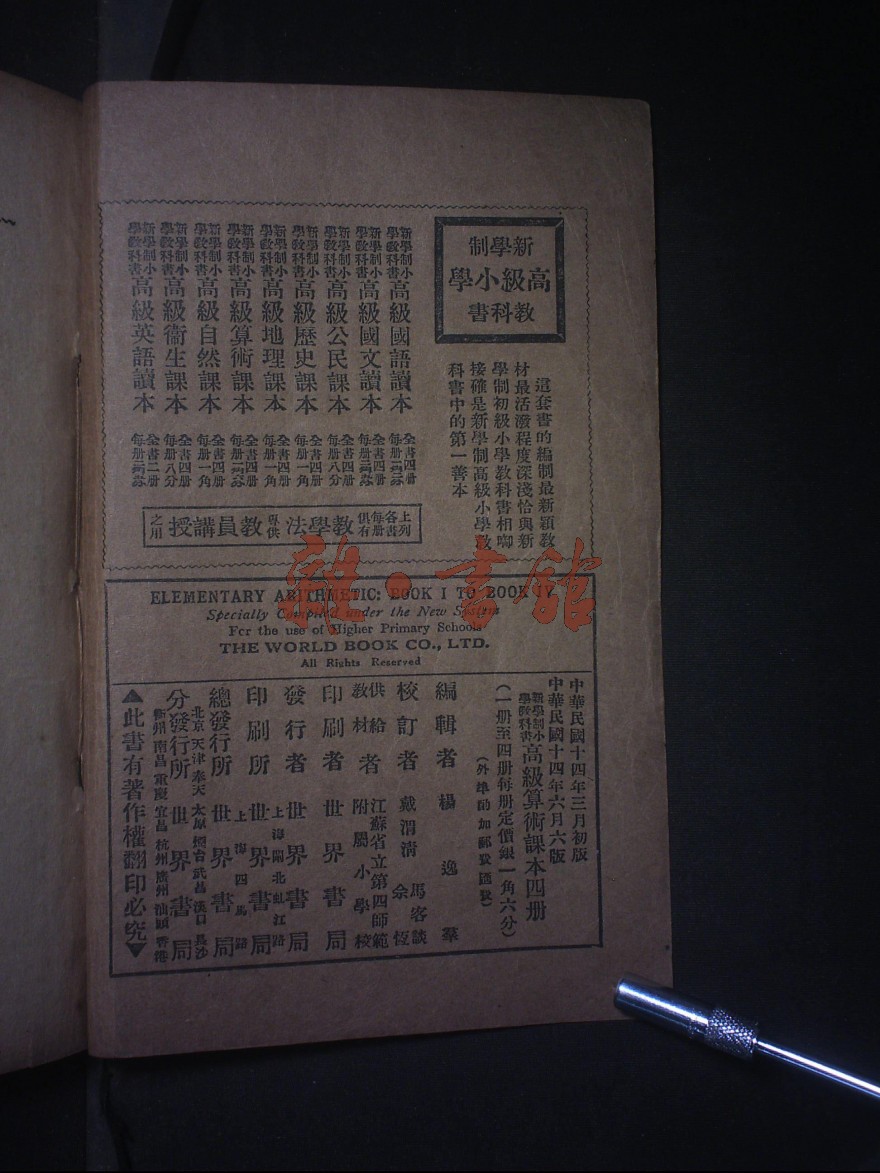 新學制
高級小學
教科書
這套書的編制最新穎教
材最活潑程度深淺恰與新
學制初級小學教科書相啣
接確是新學制高級小學教
科書中的第一善本
新學制小學教科書高級國語讀本 全書四册
新學制小學教科書高級國文讀本 全書四册
新學制小學教科書高級公民課本 全書四册每册八分
新學制小學教科書高級歷史課本 全書四册每册一角
新學制小學教科書高級地理課本 全書四册每册一角
新學制小學教科書高級算術課本 全書四册
新學制小學教科書高級自然課本 全書四册每册一角
新學制小學教科書高級衞生課本 全書四册每册八分
新學制小學教科書高級英語讀本 全書二册
上列各書每册俱有教學法專供教員講授之用
雜·書館
ELEMENTARY ARITHMETIC: BOOK I TO BOOK IV
Specially Compiled under the New System
For the use of Higher Primary Schools
THE WORLD BOOK CO., LTD.
All Rights Reserved
中華民國十四年三月初版
中華民國十四年六月六版
新學制小學教科書高級算術課本四册
(一册至四册每册定價銀一角六分)
(外埠酌加郵費匯費)
編輯者 楊逸羣
校訂者 戴渭清 馬客談 佘恆
供給教材者 江蘇省立第四師範附屬小學校
印刷者 世界書局
發行者 世界書局
印刷所 上海閘北虬江路 世界書局
總發行所 上海四馬路 世界書局
分發行所 北京 天津 奉天 太原 烟台 武昌 漢口 長沙 衡州 南昌 重慶 宜昌 杭州 廣州 汕頭 香港 世界書局
▲此書有著作權翻印必究▼